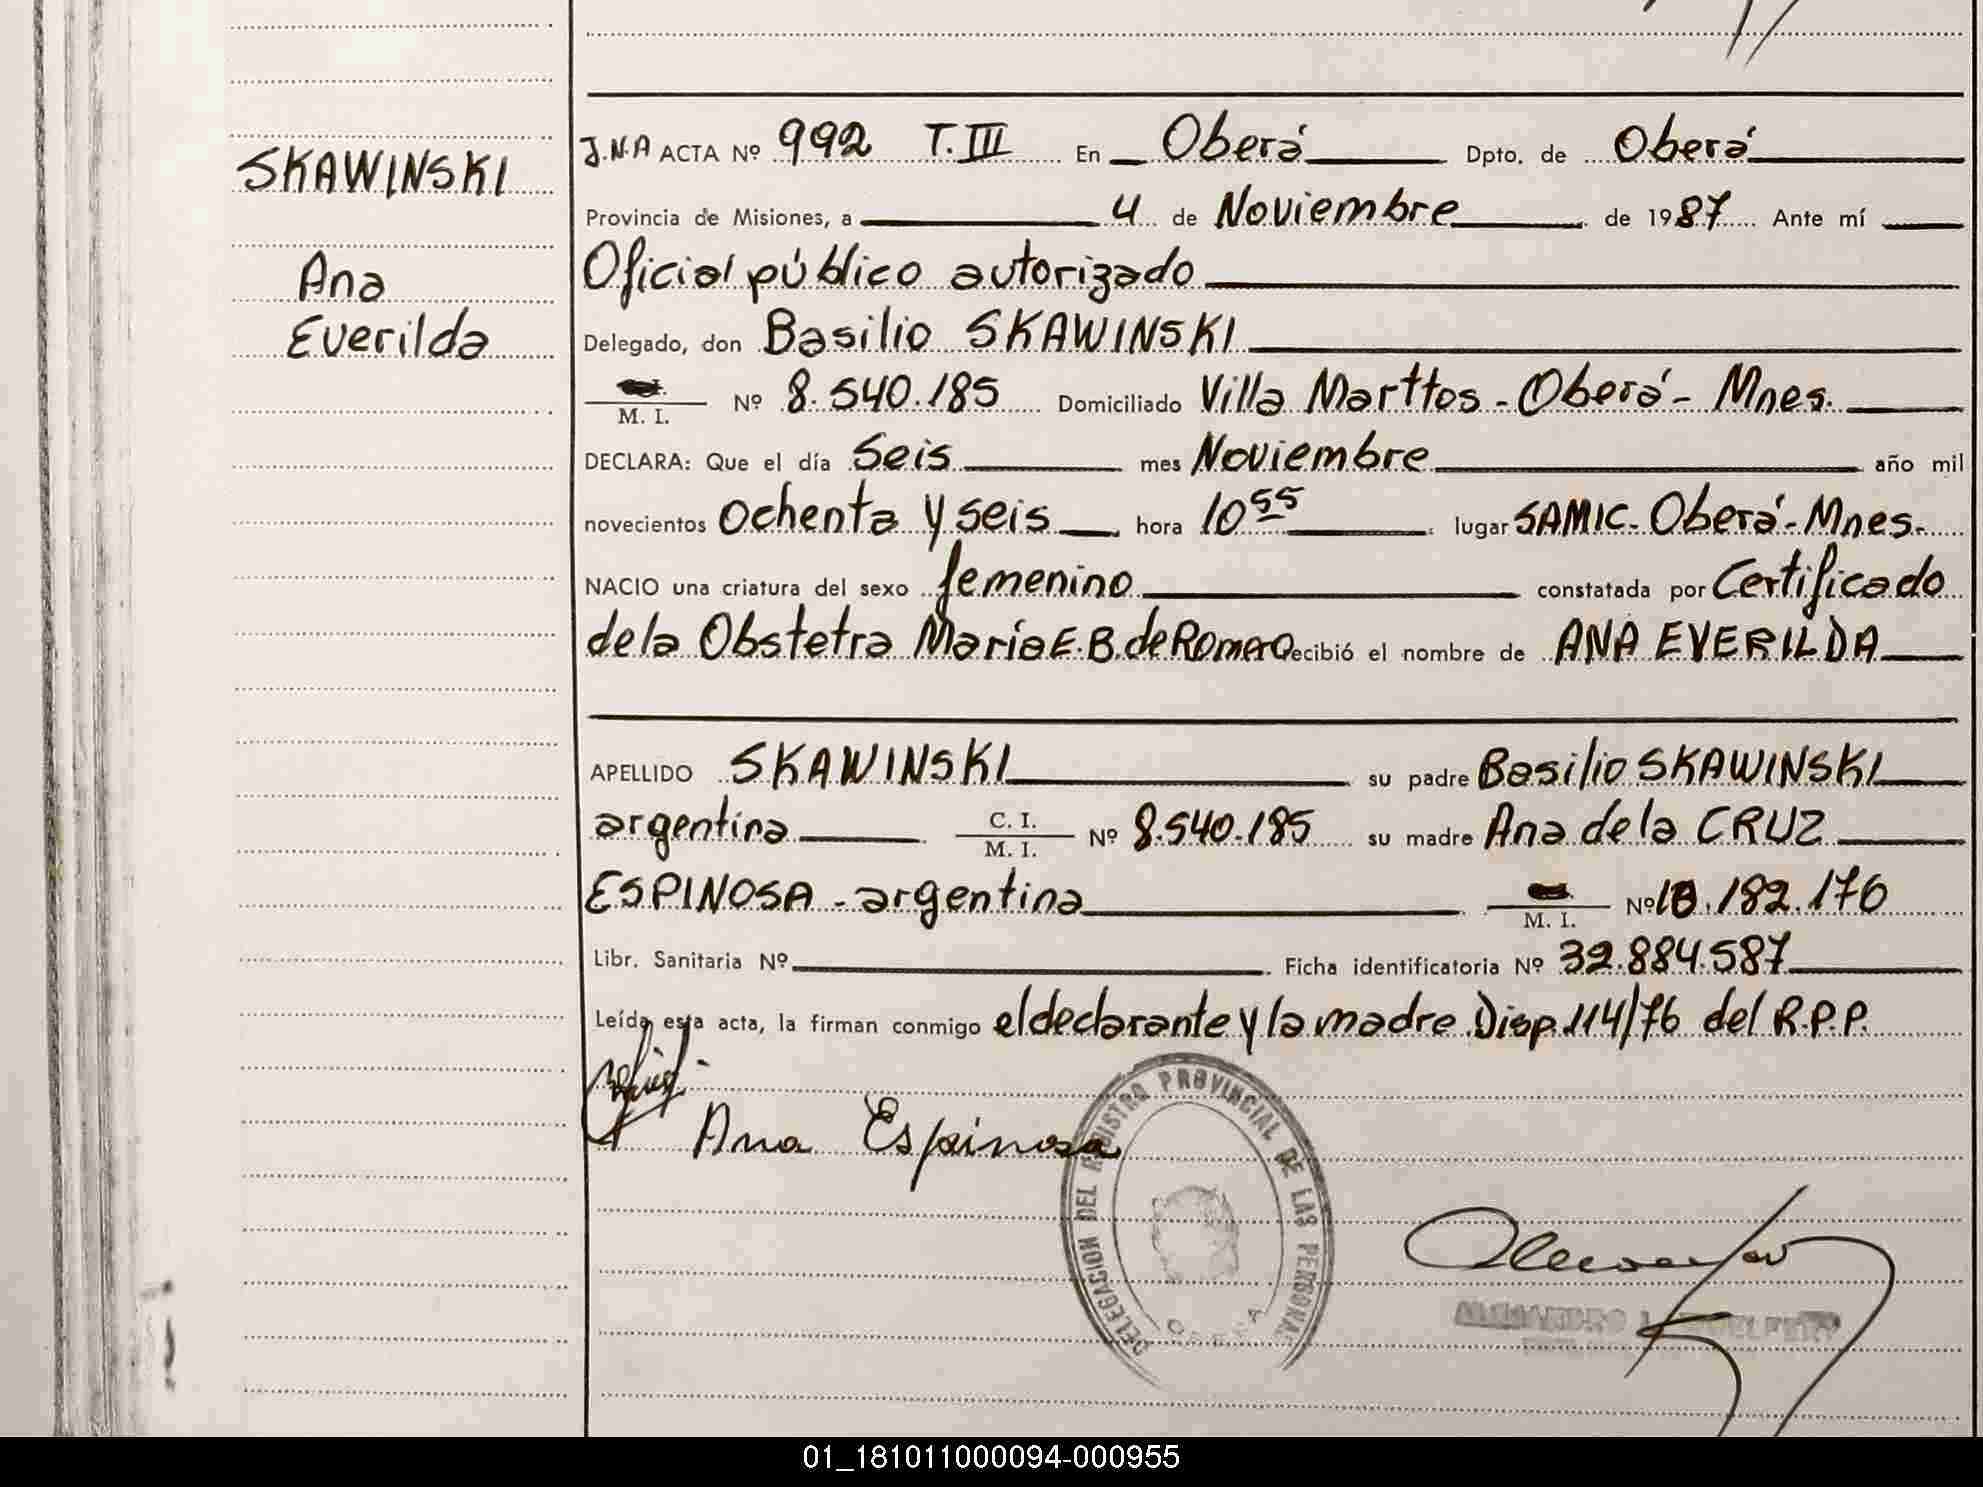 SKAWINSKI
Ana
Everilda
J.N.A ACTA Nº 992 T. III En Oberá Dpto. de Oberá
Provincia de Misiones, a 4 de Noviembre de 1987 Ante mí
Oficial público autorizado
Delegado, don Basilio SKAWINSKI
M. I. Nº 8.540.185 Domiciliado Villa Marttos - Oberá - Mnes.
DECLARA: Que el día Seis mes Noviembre año mil
novecientos Ochenta y seis hora 10 55 lugar SAMIC - Oberá - Mnes.
NACIO una criatura del sexo femenino constatada por Certificado
de la Obstetra María E. B. de Romero recibió el nombre de ANA EVERILDA
APELLIDO SKAWINSKI su padre Basilio SKAWINSKI
argentina C. I. M. I. Nº 8.540.185 su madre Ana de la CRUZ
ESPINOSA - argentina M. I. Nº 18.182.176
Libr. Sanitaria Nº Ficha identificatoria Nº 32.884.587
Leída esta acta, la firman conmigo el declarante y la madre. Disp. 114/76 del R.P.P.
Ana Espinosa
DELEGACION DEL REGISTRO PROVINCIAL DE LAS PERSONAS
OBERA
ALEJANDRO
01_181011000094-000955